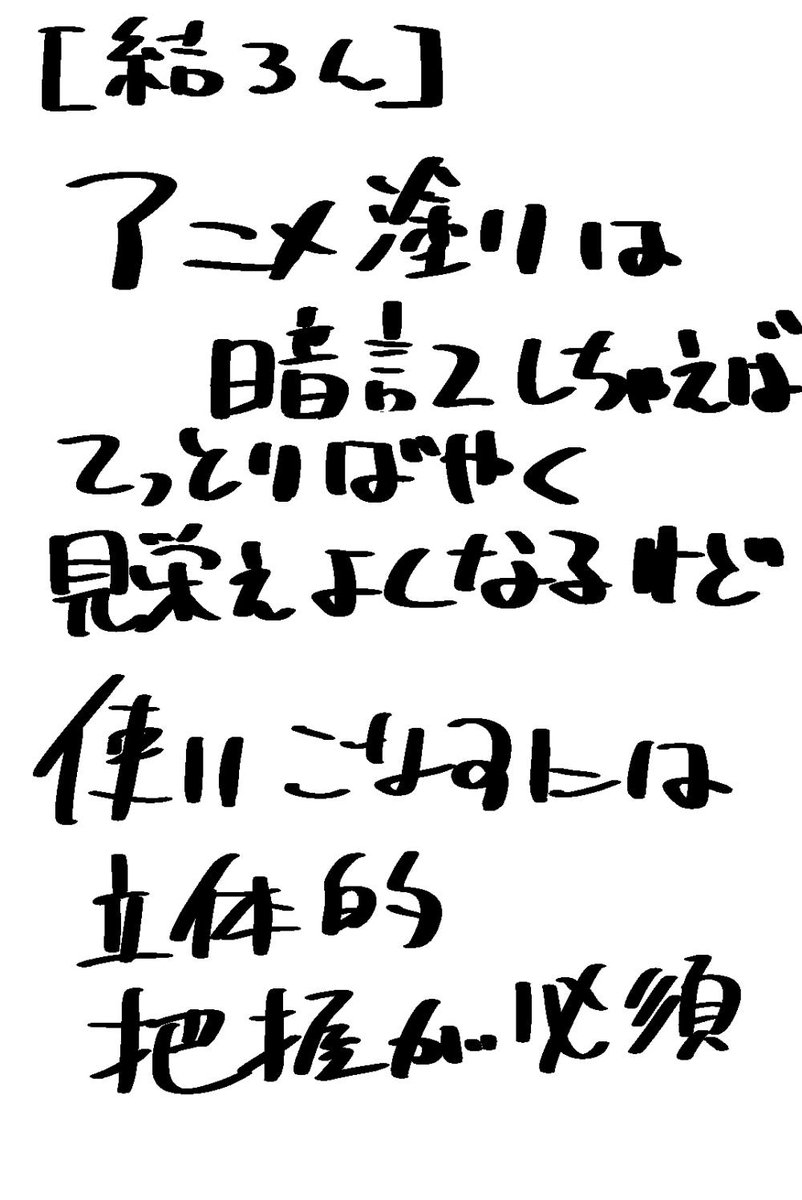 [結ろん]
アニメ塗りは
暗記しちゃえば
てっとりばやく
見栄えよくなるけど
使いこなすには
立体的
把握が必須